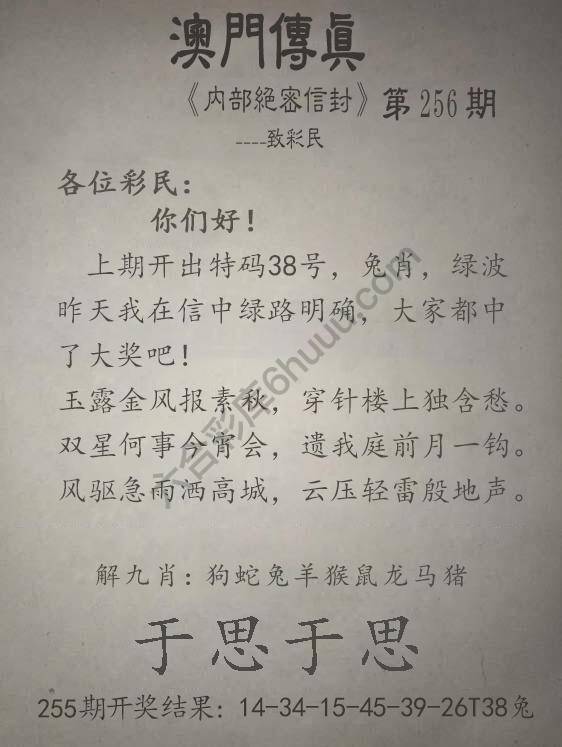 澳門傳眞
《内部絕密信封》第256期
----致彩民
各位彩民：
你们好！
上期开出特码38号，兔肖，绿波
昨天我在信中绿路明确，大家都中
了大奖吧！
玉露金风报素秋，穿针楼上独含愁。
双星何事今宵会，遗我庭前月一钩。
风驱急雨洒高城，云压轻雷殷地声。
解九肖：狗蛇兔羊猴鼠龙马猪
于思于思
255期开奖结果：14-34-15-45-39-26T38兔
六合彩库6huuu.com